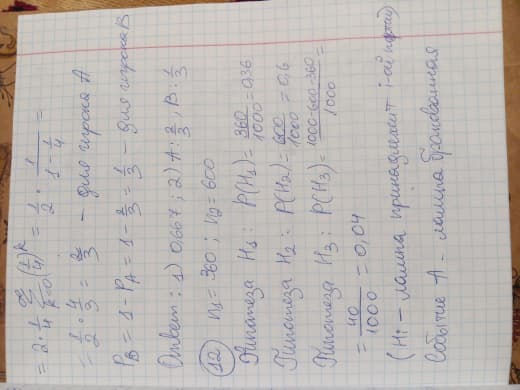 = 2 · 1/4 ∑_{k=0}^{∞} (1/4)^k = 1/2 · 1/(1 - 1/4) =
= 1/2 · 4/3 = 2/3 – для игрока A
P_B = 1 - P_A = 1 - 2/3 = 1/3 – для игрока B
Ответ: 1) 0,667; 2) A: 2/3, B: 1/3
12 n₁ = 360; n₂ = 600
Гипотеза H₁: P(H₁) = 360/1000 = 0,36
Гипотеза H₂: P(H₂) = 600/1000 = 0,6
Гипотеза H₃: P(H₃) = (1000-600-360)/1000 =
= 40/1000 = 0,04
(Hi – лампа принадлежит i-ой партии)
Событие A – лампа бракованная